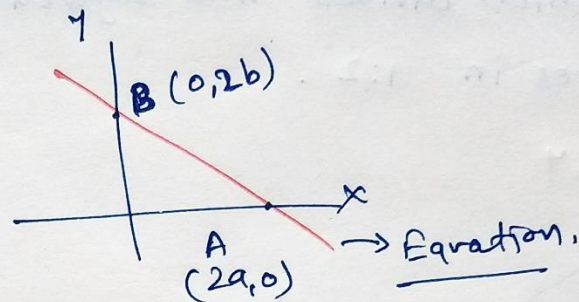 Y
B (0,2b)
X
A
(2a,0)
→ Equation.